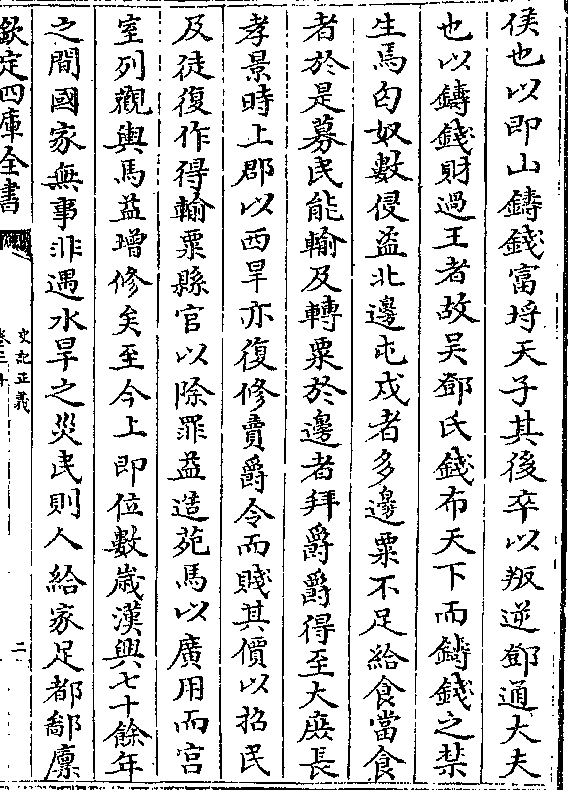 侯也以即山鑄錢富埒天子其後卒以叛逆鄧通大夫
也以鑄錢財過王者故吴鄧氏錢布天下而鑄錢之禁
生焉匈奴數侵盗北邊屯戍者多邊粟不足給食當食
者於是募民能輸及轉粟於邊者拜爵爵得至大庶長
孝景時上郡以西旱亦復修賣爵令而賤其價以招民
及徒復作得輸粟縣官以除罪益造苑馬以廣用而宫
室列觀輿馬益增修矣至今上即位數歲漢興七十餘年
之間國家無事非遇水旱之災民則人給家足都鄙廩
欽定四庫全書
史記正義
卷三十
二